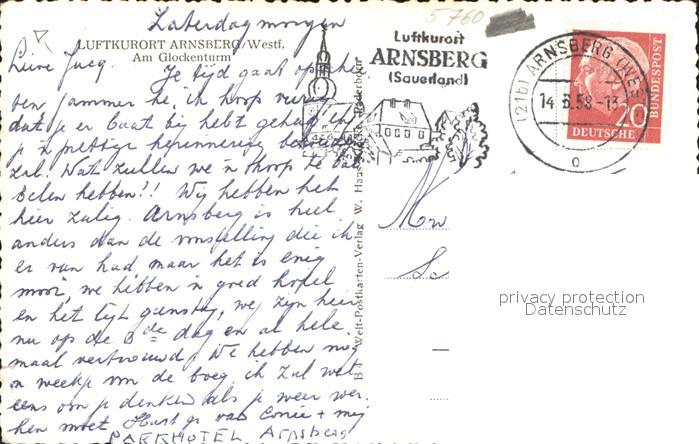 Zaterdagmorgen
5760
LUFTKURORT ARNSBERG/Westf.
Am Glockenturm
Lieve Jacq. Je tijd gaat op, he.
ben jammer he, ik hoop
dat je er baat bij hebt gehad en
je 'n prettige herinnering
zal. Wat zullen we 'n hoop te
len hebben!! Wij hebben het
hier zalig. Arnsberg is heel
anders dan de voorstelling die ik
er van had, maar het is enig
mooi, we hebben 'n goed hotel
en het ligt gunstig, we zijn hier
nu op de 3de dag en al hele
maal vertrouwd. We hebben nog
'n weekje voor de boeg, ik zal wel
eens om je denken als je weer wer
ken moet. Hart. gr van Corrie + mij
PARKHOTEL Arnsberg
B 4 Welt-Postkarten-Verlag W. Haus
Paderborn
Luftkurort
ARNSBERG
(Sauerland)
(21b) ARNSBERG (WESTF
14.6.58-13
o
20
DEUTSCHE
BUNDESPOST
privacy protection
Datenschutz